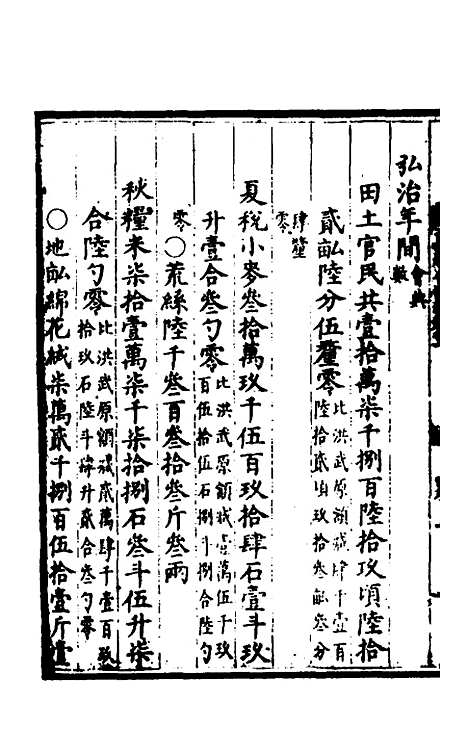 弘治年間會典數
田土官民共壹拾萬柒千捌百陸拾玖頃陸拾
貳畝陸分伍釐零比洪武原額减肆千壹百陸拾貳頃玖拾叁畝叁分肆釐零
夏稅小麥叁拾萬玖千伍百玖拾肆石壹斗玖
升壹合叁勺零比洪武原額减壹萬伍千玖百伍拾伍石捌斗捌合陸勺零
○荒絲陸千叁百叁拾叁斤叁兩
秋糧米柒拾壹萬柒千柒拾捌石叁斗伍升柒
合陸勺零比洪武原額减貳萬肆千壹百玖拾玖石陸斗肆升貳合叁勺零
○地畝綿花絨柒萬貳千捌百伍拾壹斤壹